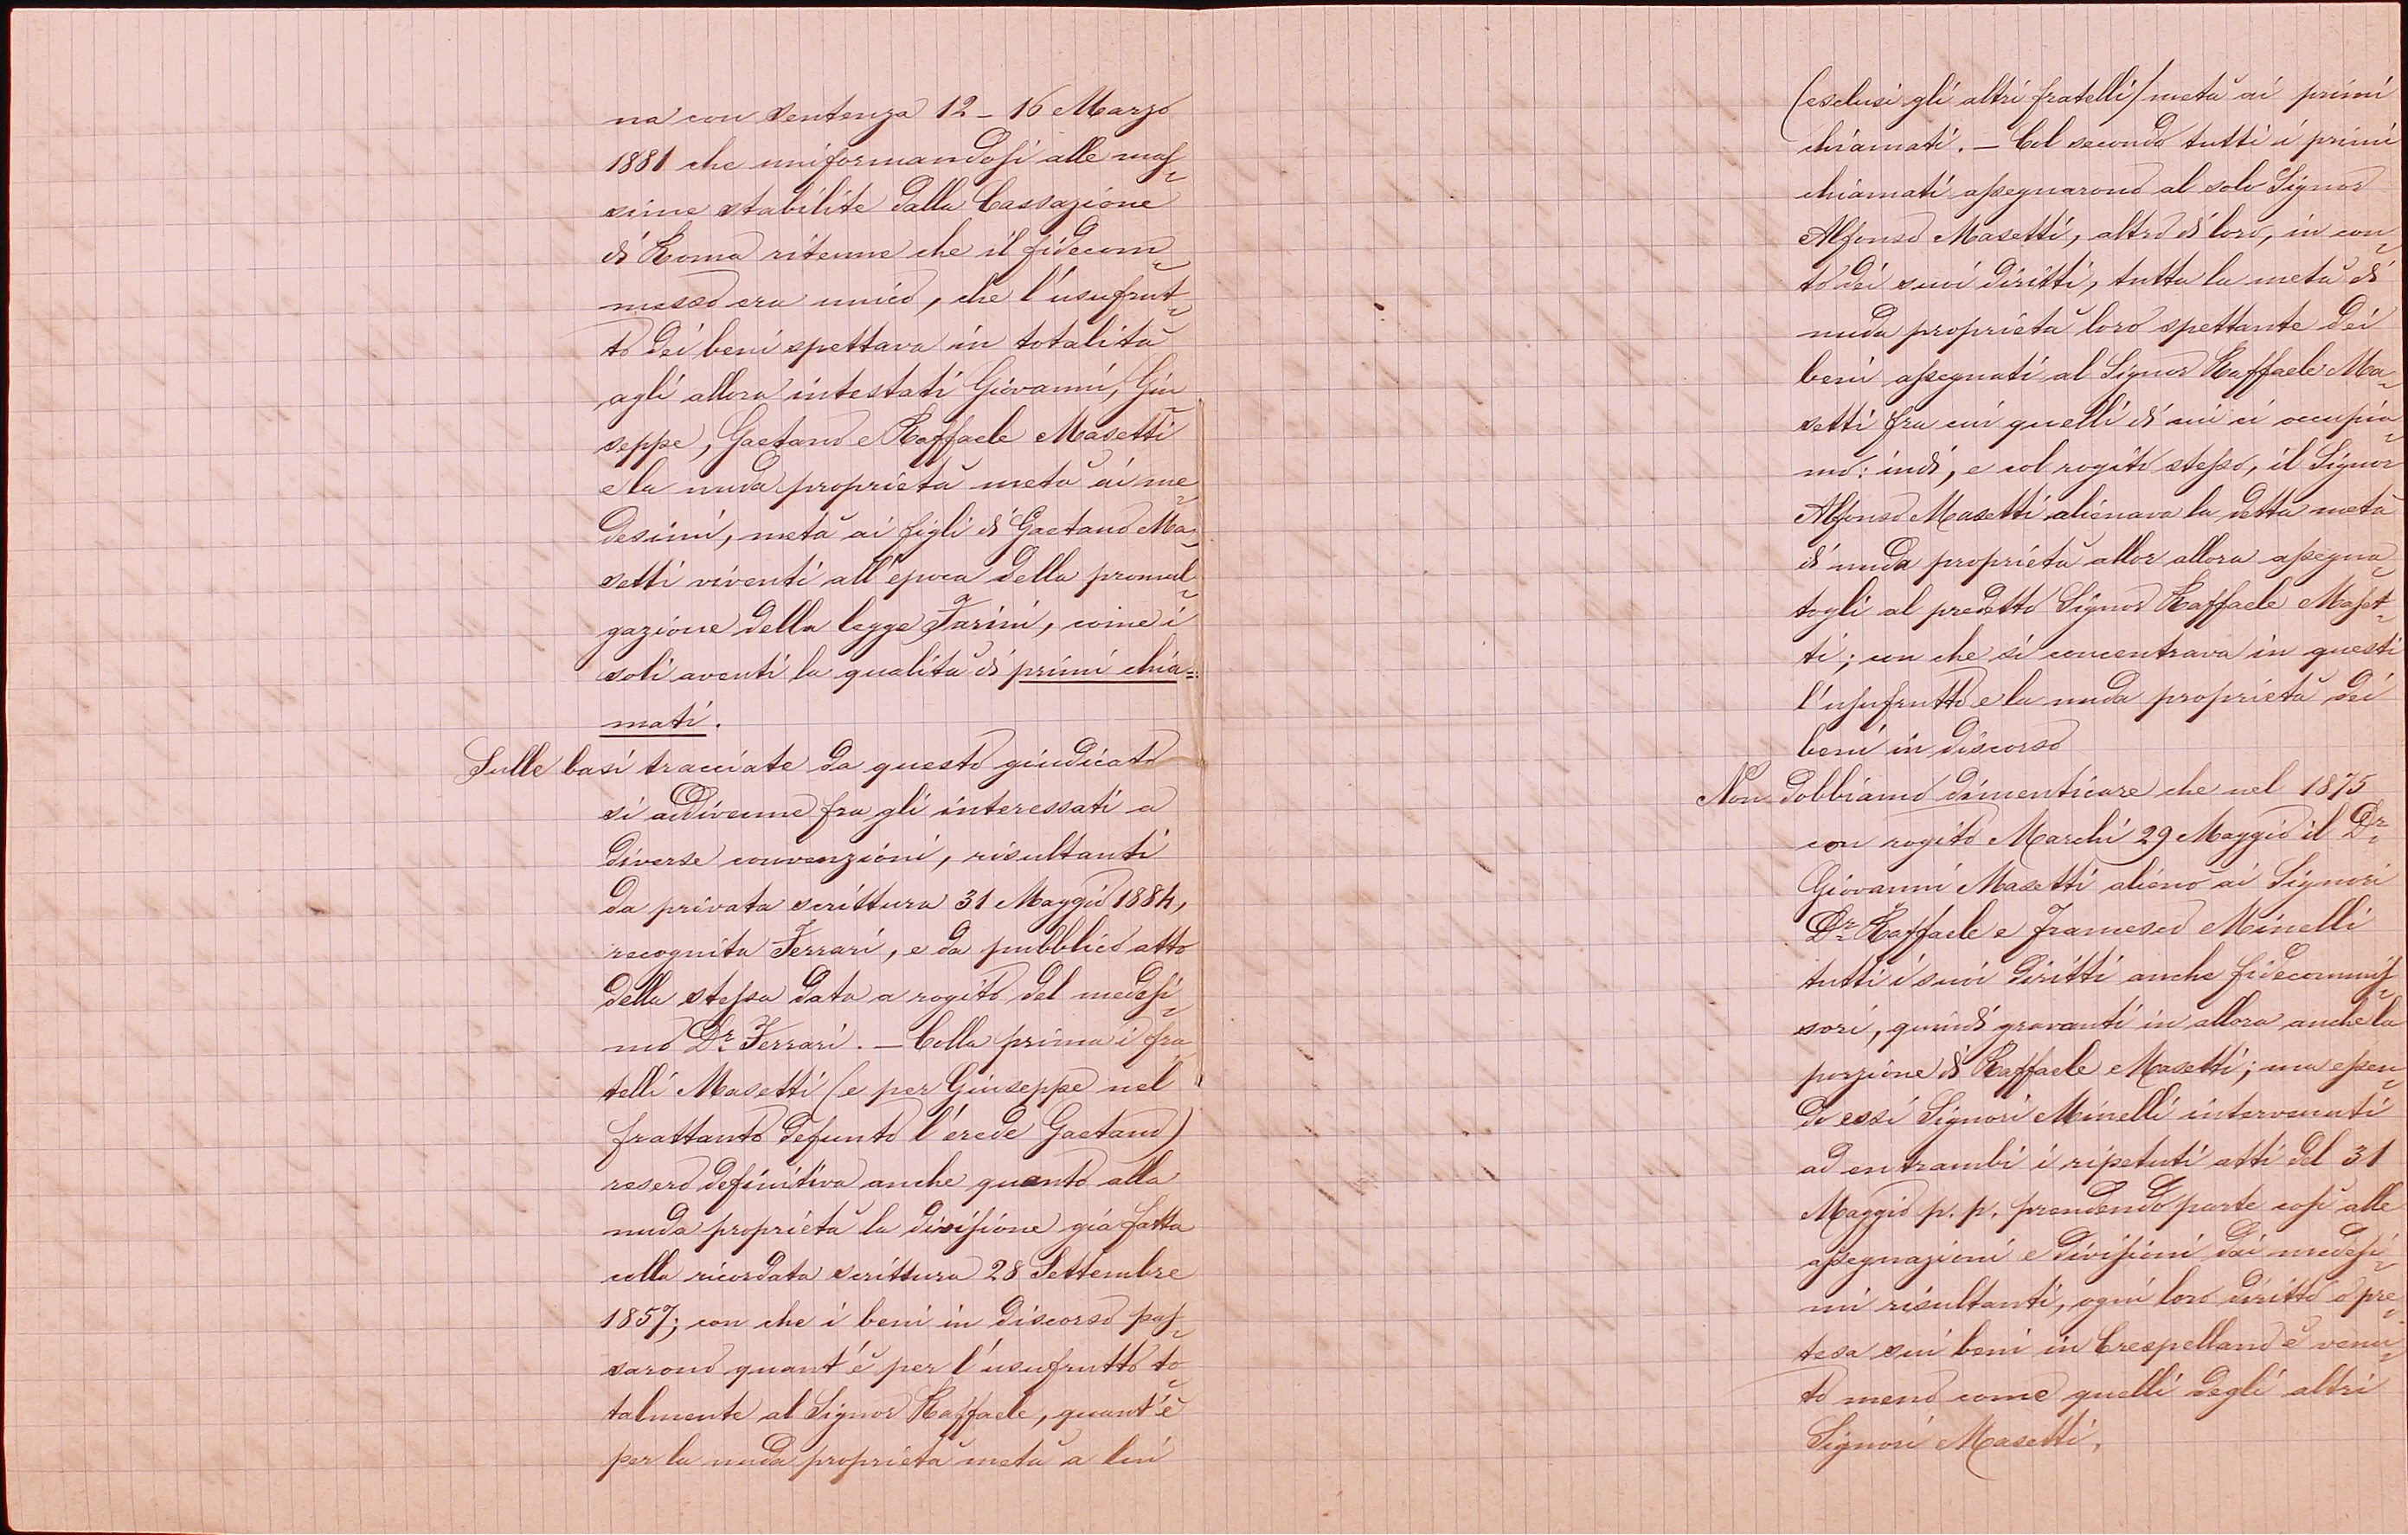 na con sentenza 12 - 16 Marzo
1881 che uniformandosi alle mas=
sime stabilite dalla Cassazione
di Roma ritenne che il fidecom=
messo era unico, che l'usufrut=
to dei beni spettava in totalità
agli allora intestati Giovanni, Giu
seppe, Gaetano e Raffaele Masetti
e la nuda proprietà metà ai me=
desimi, metà ai figli di Gaetano Ma=
setti viventi all'epoca della promul=
gazione della legge Farini, come i
soli aventi la qualità di primi chia=
mati.
Sulle basi tracciate da questo giudicato
si addivenne fra gli interessati a
diverse convenzioni, risultanti
da privata scrittura 31 Maggio 1884,
recognita Ferrari, e da pubblico atto
della stessa data a rogito del medesi=
mo Dr. Ferrari. - Colla prima i fra
telli Masetti (e per Giuseppe nel
frattanto defunto l'erede Gaetano)
resero definitiva anche quanto alla
nuda proprietà la divisione già fatta
colla ricordata scrittura 28 Settembre
1857; con che i beni in discorso pas=
sarono quant'è per l'usufrutto to=
talmente al Signor Raffaele, quant'è
per la nuda proprietà metà a lui
(esclusi gli altri fratelli) metà ai primi
chiamati. - Col secondo tutti i primi
chiamati assegnarono al solo Signor
Alfonso Masetti, altro di loro, in con=
to dei suoi diritti, tutta la metà di
nuda proprietà loro spettante dei
beni assegnati al Signor Raffaele Ma=
setti fra cui quelli di cui ci occupia=
mo: indi, e col rogito stesso, il Signor
Alfonso Masetti alienava la detta metà
di nuda proprietà allor allora assegna=
togli al predetto Signor Raffaele Maset=
ti; con che si concentrava in questi
l'usufrutto e la nuda proprietà dei
beni in discorso
Non dobbiamo dimenticare che nel 1875
con rogito Marchi 29 Maggio il Dr.
Giovanni Masetti alienò ai Signori
Dr. Raffaele e Francesco Minelli
tutti i suoi diritti anche fidecommis=
sori, quindi gravanti in allora anche la
porzione di Raffaele Masetti; ma essen=
do essi Signori Minelli intervenuti
ad entrambi i ripetuti atti del 31
Maggio p. p. prendendo parte così alle
assegnazioni e divisioni dai medesi=
mi risultanti, ogni loro diritto o pre=
tesa sui beni in Crespellano è venu=
to meno come quelli degli altri
Signori Masetti.